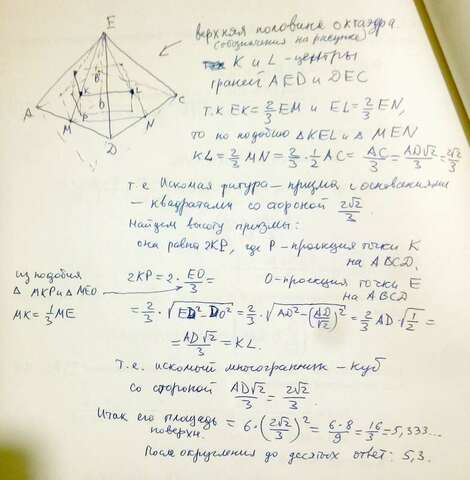 E
A
B
C
D
K
L
M
N
O
P
верхняя половина октаэдра.
(обозначения на рисунке)
K и L - центры
граней AED и DEC
т.к EK = 2/3 EM и EL = 2/3 EN,
то по подобию Δ KEL и Δ MEN
KL = 2/3 MN = 2/3 · 1/2 AC = AC/3 = AD√2/3 = 2√2/3
т.е Искомая фигура - призма с основаниями
- квадратами со стороной 2√2/3.
Найдем высоту призмы:
она равна 2KP, где P - проекция точки K
на ABCD,
из подобия
Δ MKP и Δ MEO
MK = 1/3 ME
2KP = 2 · EO/3 =
O - проекция точки E
на ABCD
= 2/3 · √(ED² - DO²) = 2/3 · √(AD² - (AD/√2)²) = 2/3 AD · √(1/2) =
= AD√2/3 = KL.
Т.е. искомый многогранник - куб
со стороной AD√2/3 = 2√2/3.
Итак его площадь поверхн. = 6 · (2√2/3)² = 6·8/9 = 16/3 = 5,333...
После округления до десятых ответ: 5,3.